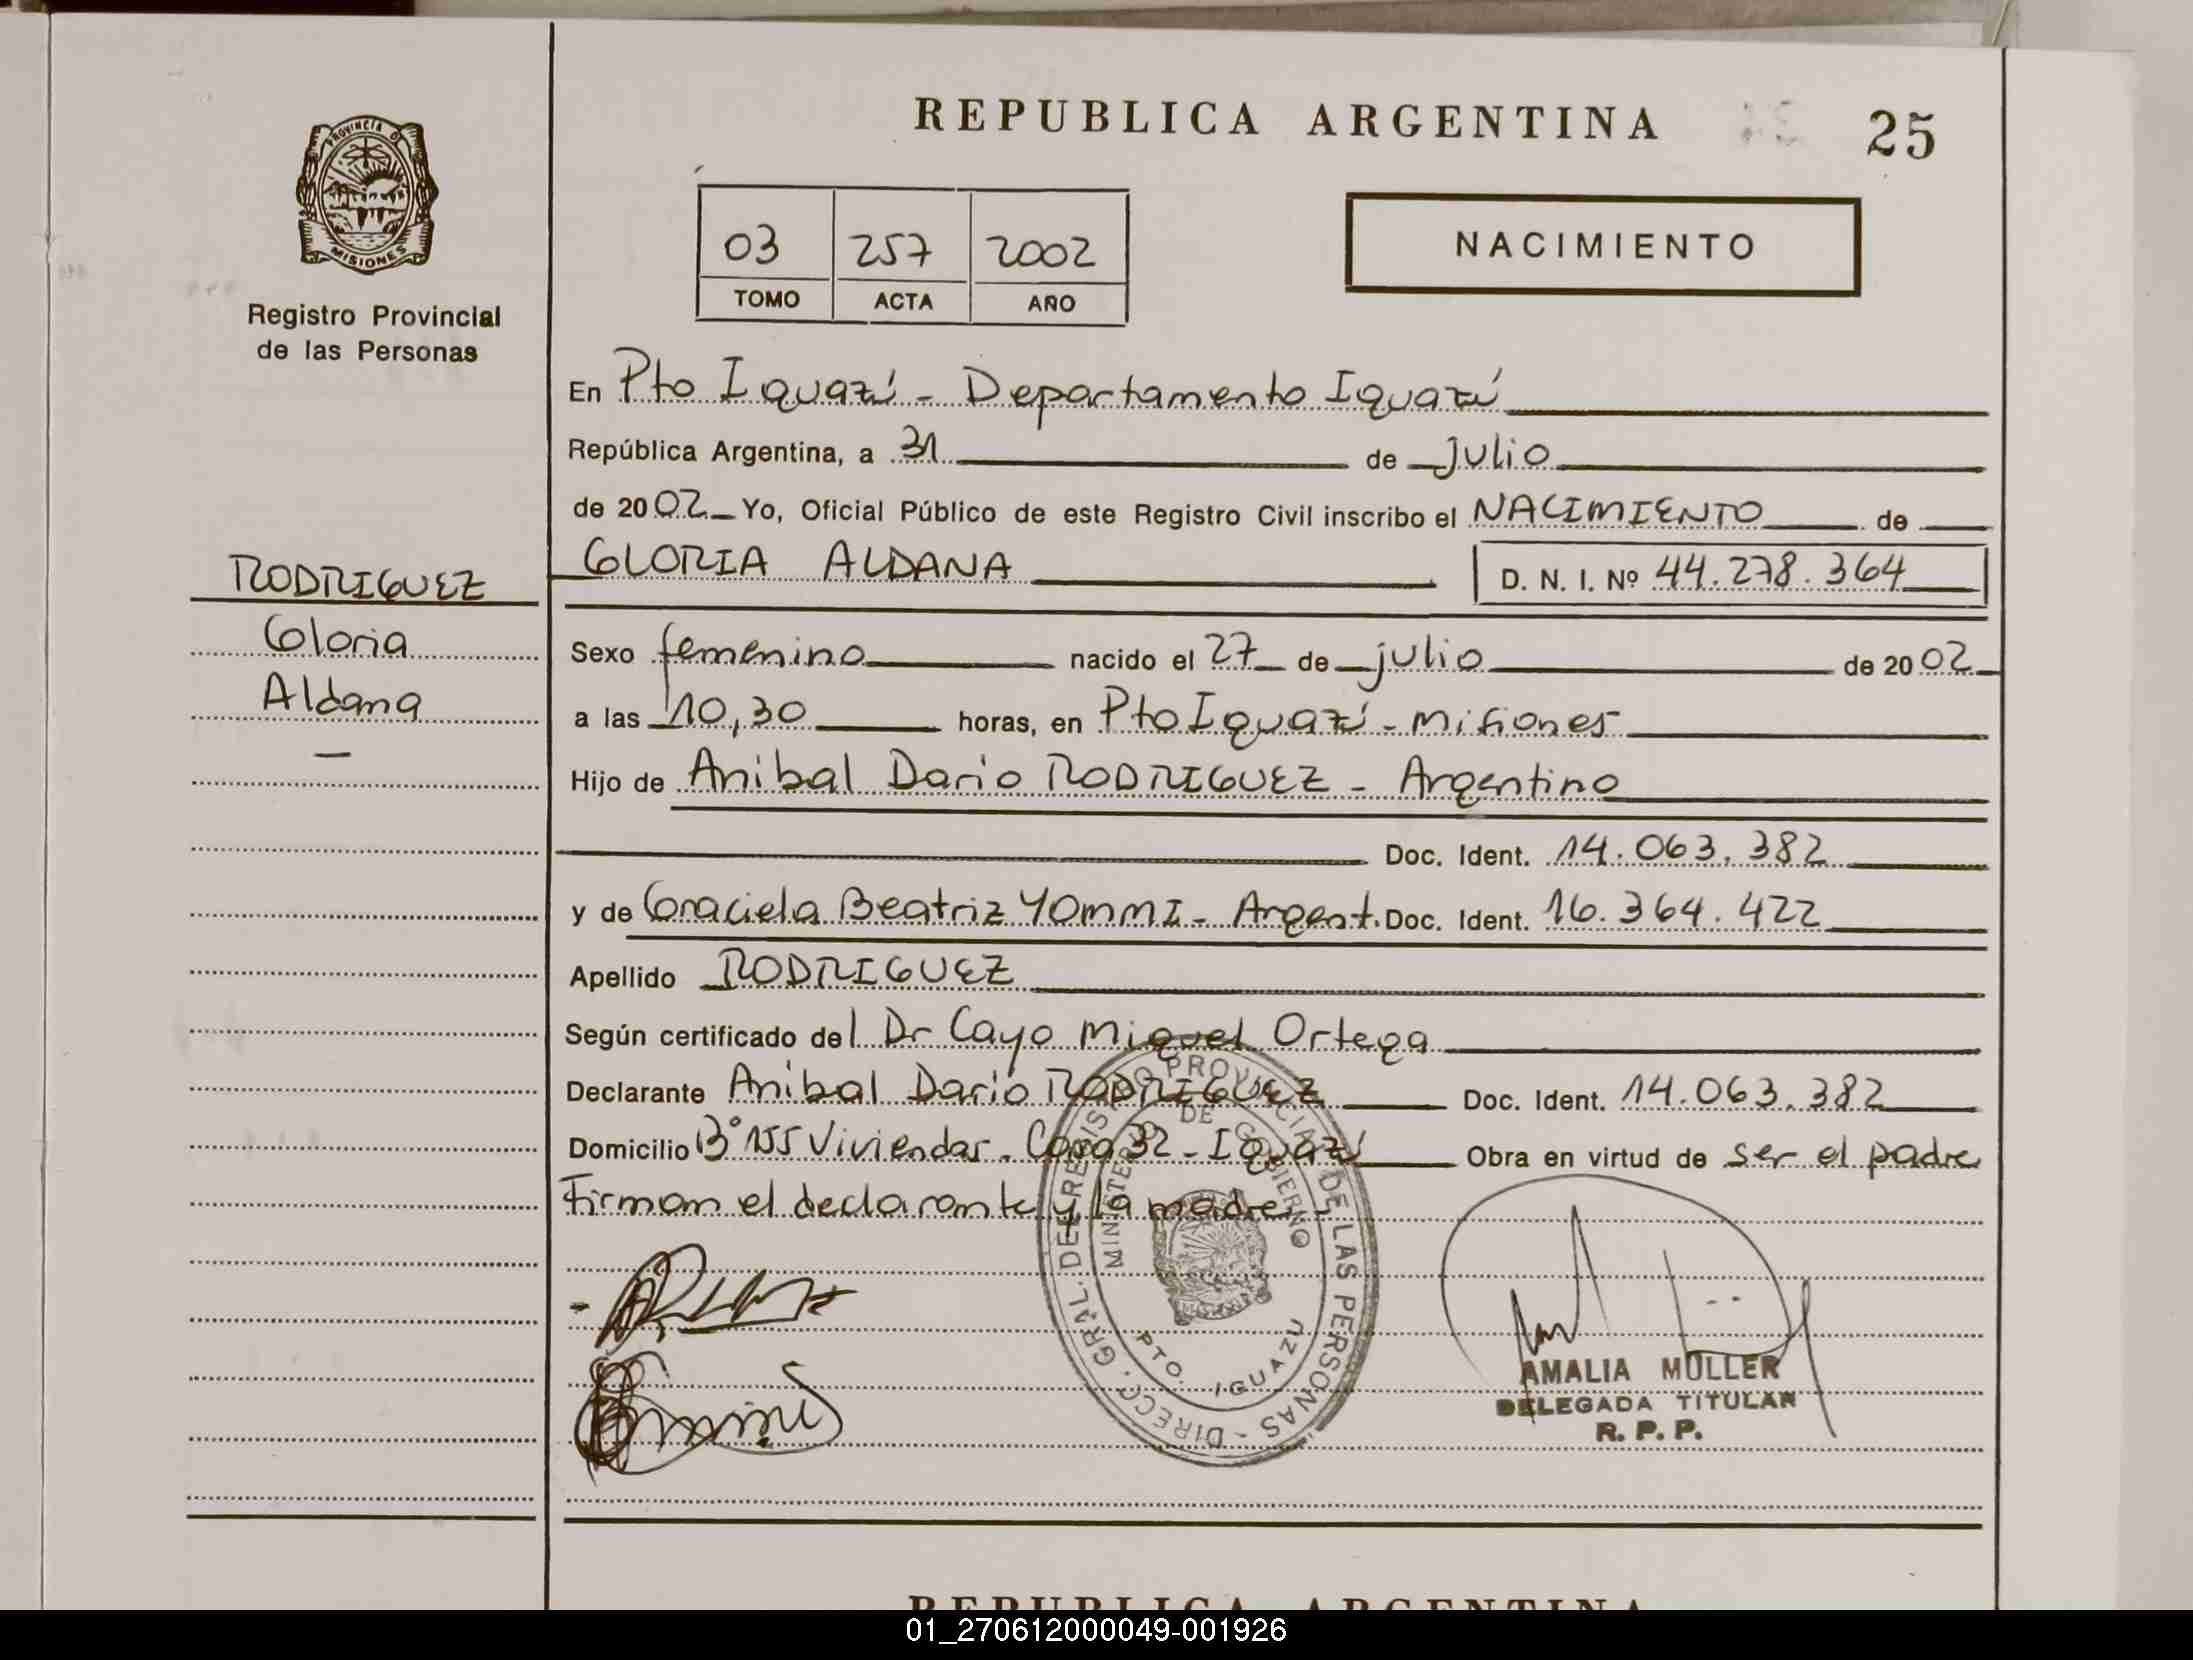 REPUBLICA ARGENTINA
25
PROVINCIA DE
MISIONES
Registro Provincial
de las Personas
03 257 2002
TOMO ACTA AÑO
NACIMIENTO
En Pto Iguazú - Departamento Iguazú
República Argentina, a 31 de Julio
de 2002 Yo, Oficial Público de este Registro Civil inscribo el NACIMIENTO de
GLORIA ALDANA
D. N. I. Nº 44.278.364
RODRIGUEZ
Gloria
Aldana
Sexo femenino nacido el 27 de julio de 2002
a las 10,30 horas, en Pto Iguazú - Misiones
Hijo de Anibal Dario RODRIGUEZ - Argentino
Doc. Ident. 14.063.382
y de Graciela Beatriz YOMMI - Argent. Doc. Ident. 16.364.422
Apellido RODRIGUEZ
Según certificado del Dr Cayo Miguel Ortega
Declarante Anibal Dario RODRIGUEZ Doc. Ident. 14.063.382
Domicilio Bº 155 Viviendas - Casa 32 - Iguazú Obra en virtud de ser el padre
Firman el declarante y la madre
DIRECC. GRAL. DEL REGISTRO PROVINCIAL DE LAS PERSONAS -
MINISTERIO DE GOBIERNO
PTO. IGUAZU
AMALIA MULLER
DELEGADA TITULAR
R. P. P.
REPUBLICA ARGENTINA
01_270612000049-001926